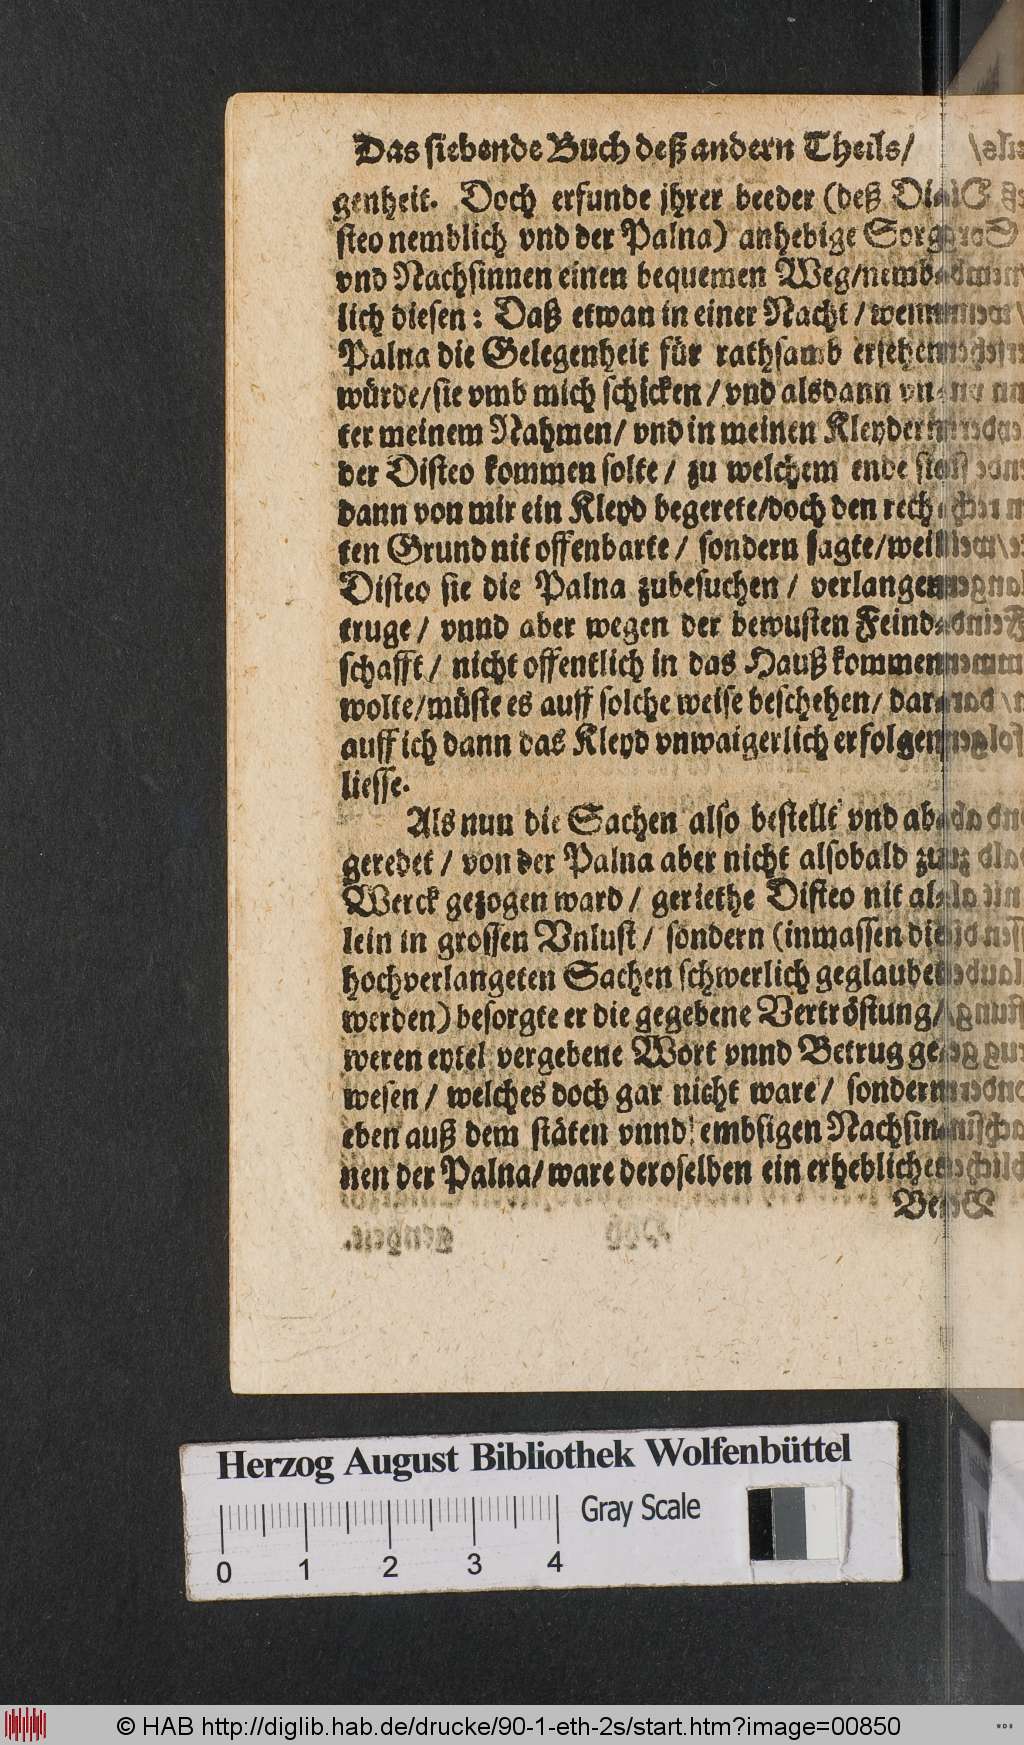 Das siebende Buch deß andern Theils/
genheit. Doch erfunde jhrer beeder (deß Di-
steo nemblich vnd der Palna) anhebige Sorg
vnd Nachsinnen einen bequemen Weg/nemb-
lich diesen: Daß etwan in einer Nacht/wenn
Palna die Gelegenheit für rathsamb ersehen
würde/sie vmb mich schicken/vnd alsdann vn-
ter meinem Nahmen/vnd in meinen Kleydern
der Disteo kommen solte/ zu welchem ende sie
dann von mir ein Kleyd begerete/doch den rech-
ten Grund nit offenbarte/ sondern sagte/weil
Disteo sie die Palna zubesuchen/ verlangen
truge/ vnnd aber wegen der bewusten Feind-
schafft/ nicht offentlich in das Hauß kommen
wolte/müste es auff solche weise beschehen/ dar-
auff ich dann das Kleyd vnwaigerlich erfolgen
liesse.
Als nun die Sachen also bestellt vnd ab-
geredet/ von der Palna aber nicht alsobald zu
Werck gezogen ward/ geriethe Disteo nit al-
lein in grossen Vnlust/ sondern (inmassen die
hochverlangeten Sachen schwerlich geglaubet
werden) besorgte er die gegebene Vertröstung/
weren eytel vergebene Wort vnnd Betrug ge-
wesen/ welches doch gar nicht ware/ sondern
eben auß dem stäten vnnd embsigen Nachsin-
nen der Palna/ware deroselben ein erheblicher
Herzog August Bibliothek Wolfenbüttel
0 1 2 3 4
Gray Scale
© HAB http://diglib.hab.de/drucke/90-1-eth-2s/start.htm?image=00850